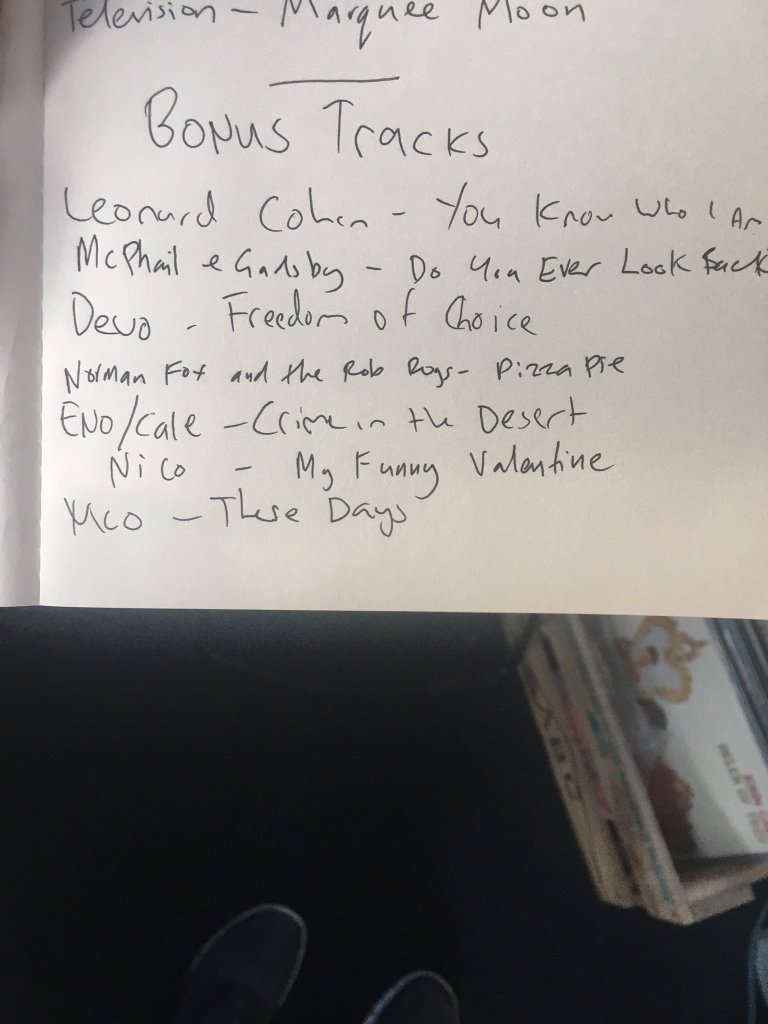 Television - Marquee Moon
Bonus Tracks
Leonard Cohen - You Know Who I Am
McPhail & Gadsby - Do You Ever Look Back
Devo - Freedom of Choice
Norman Fox and the Rob Roys - Pizza Pie
ENO/Cale - Crime in the Desert
Nico - My Funny Valentine
Nico - These Days